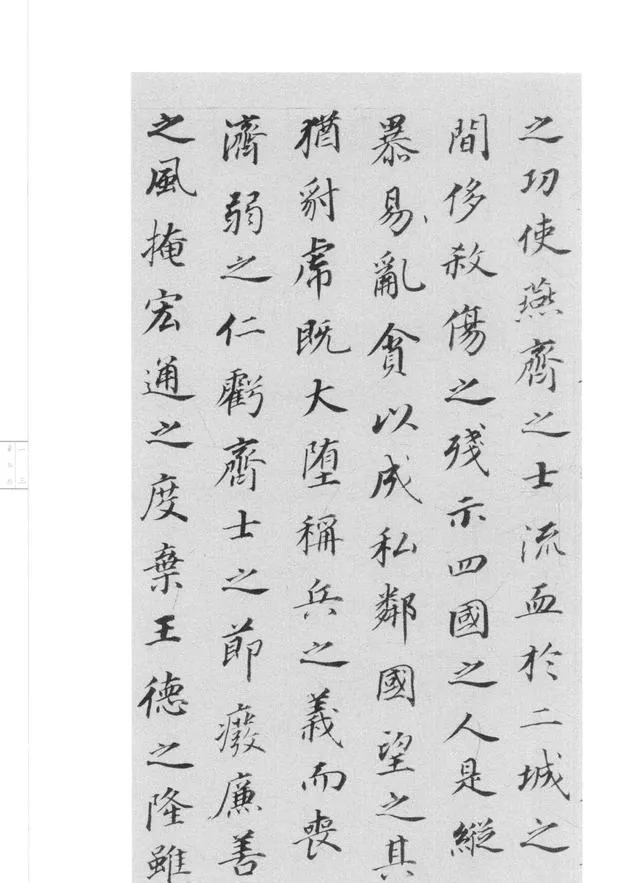 之功使燕齊之士流血於二城之
間侈殺傷之殘示四國之人是縱
暴易亂貪以成私鄰國望之其
猶豺虎既大墮稱兵之義而喪
濟弱之仁虧齊士之節癈廉善
之風掩宏通之度棄王德之隆雖